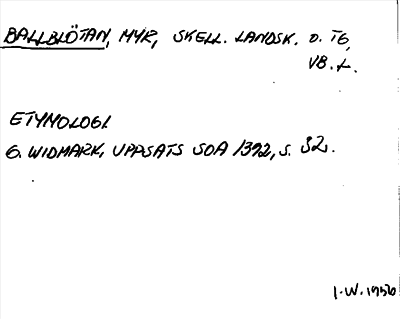 BALLBLÖTAN, MYR, SKELL. LANDSK. O. TG,
VB. L.
ETYMOLOGI
G. WIDMARK, UPPSATS SOA 1392, S. 32.
I.W. 1956